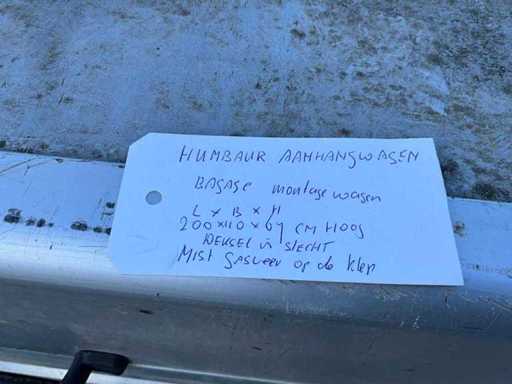 HUMBAUR AANHANGWAGEN
BAGAGE montage wagen
L x B x H
200x110x64 CM HOOG
DEKSEL is SLECHT
Mist GASVEER op de klep